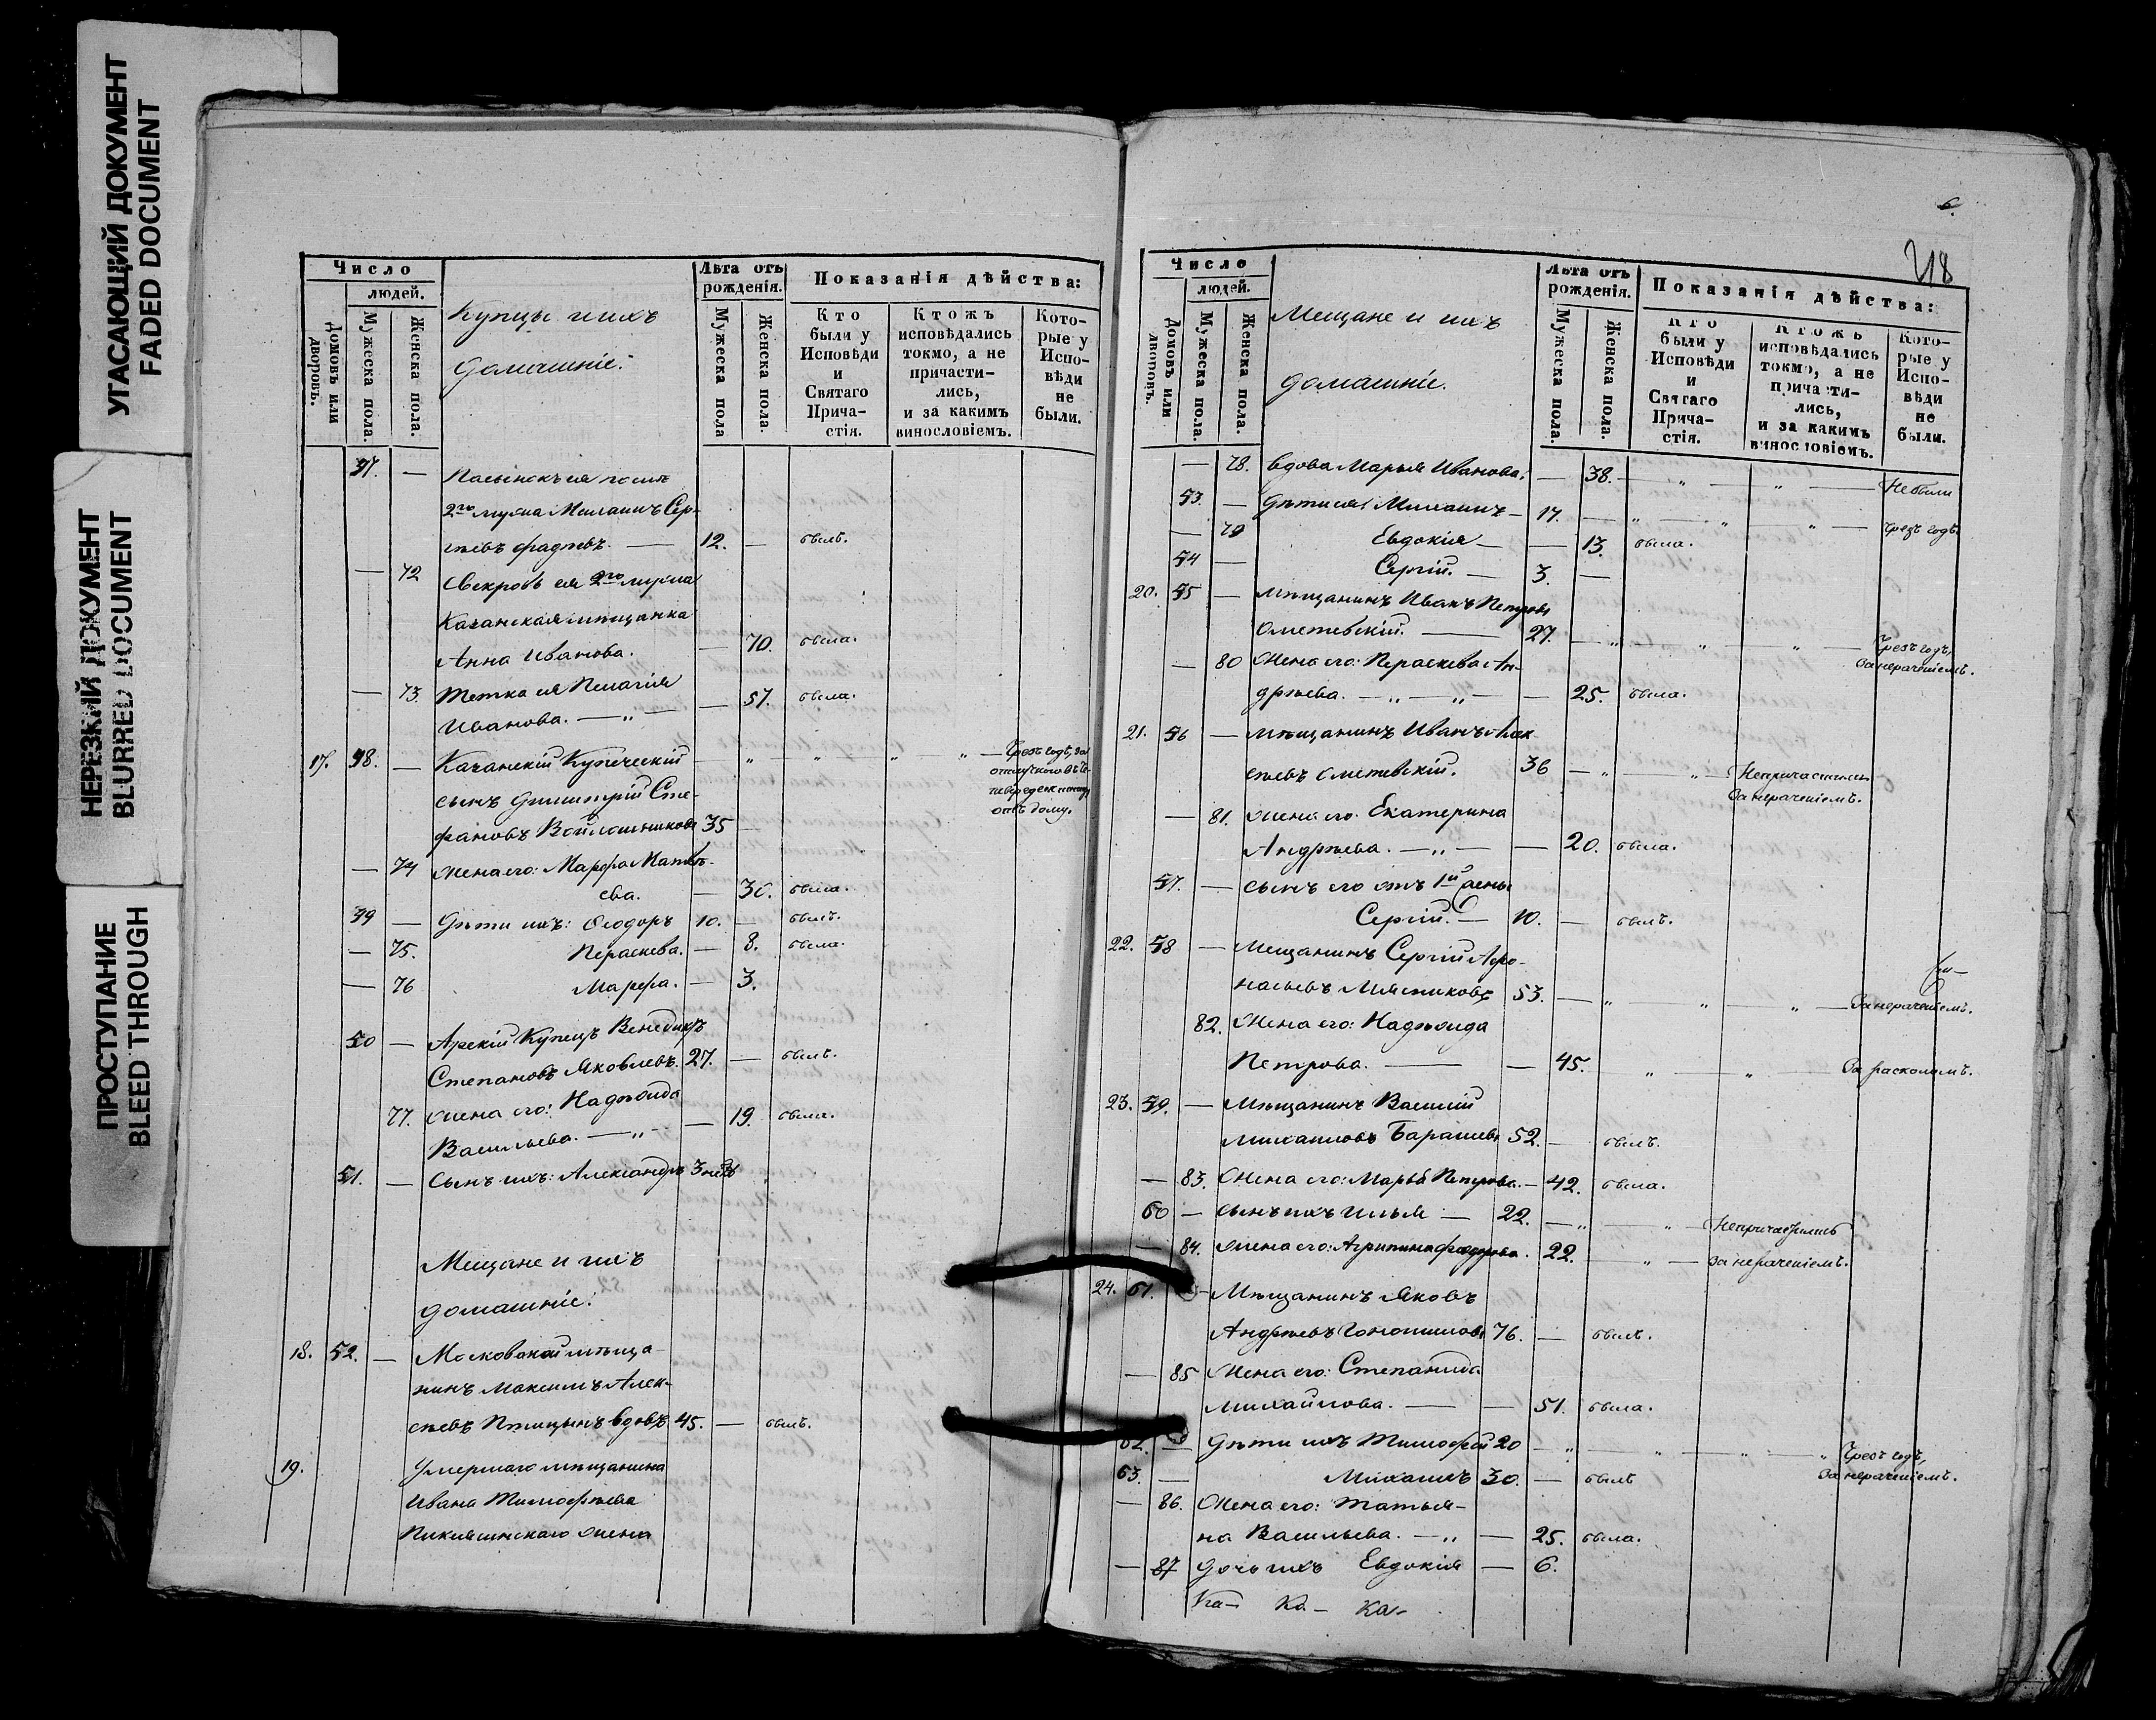 УГАСАЮЩИЙ ДОКУМЕНТ
FADED DOCUMENT
НЕРЕЗКИЙ ДОКУМЕНТ
BLURRED DOCUMENT
ПРОСТУПАНИЕ
BLEED THROUGH
Число
людей.
Домовъ или дворовъ.
Мужеска пола.
Женска пола.
Купцы и ихъ
домашніе:
Лѣта отъ рожденія.
Мужеска пола
Женска пола.
Показанія дѣйства:
Кто были у Исповѣди и Святаго Причастія.
Ктожъ исповѣдались токмо, а не причастились, и за какимъ винословіемъ.
Которые у Исповѣди не были.
47. —
2го мужа Михаилъ Сер-
гѣевъ — 12. — былъ.
— 72 Свекровь ея 2го мужа
Казанская мѣщанка
Анна Иванова. — 70. была.
— 73. Тетка ея Пелагія
Иванова. — „ — — 57. была.
17. 48. — Казанскій Купеческій — „ „ „ „ — Чрезъ годъ, за
сынъ Димитрій Сте-
фановъ Войлошниковъ 35 — отъ дому.
— 74 жена его: Марфа Матвѣ-
ева. — 30. была.
49 — Дѣти ихъ: Ѳеодоръ 10. — былъ.
— 75. Параскева. — 8. была.
— 76 Марфа. — 3.
50 — Арскій Купецъ Венедиктъ
Степановъ Яковлевъ. 27. — былъ.
77. жена его: Надѣжда
Васильева. — „ — — 19. была.
51. — Сынъ ихъ: Александръ 3 нед.
Мещане и ихъ
домашніе:
18. 52. — Московской мѣща-
нинъ Максимъ Алек-
сѣевъ Птицынъ вдовъ 45. — былъ.
19. Умершаго мѣщанина
Ивана Тимофѣева
жена
6.
218
Число
людей.
Домовъ или дворовъ.
Мужеска пола.
Женска пола.
Мещане и ихъ
домашніе.
Лѣта отъ рожденія.
Мужеска пола.
Женска пола.
Показанія дѣйства:
Кто были у Исповѣди и Святаго Причастія.
Ктожъ исповѣдались токмо, а не причастились, и за какимъ винословіемъ.
Которые у Исповѣди не были.
— 78. вдова Марья Иванова. — 38. — „ — „ — Небыли
53. — дѣти ея: Михаилъ — 17. — „ — „ — „ — чрезъ годъ.
— 79 Евдокія — — 13. была.
54 — Сергій. — 3. —
20. 55 — мѣщанинъ Иванъ Петровъ
Ометевскій. — 27. — „ — „ — „ — Чрезъ годъ,
за нераченіемъ.
— 80 Жена его: Параскева Ан-
дрѣева. — „ — „ — 25. была.
21. 56 — мѣщанинъ Иванъ Алек-
сѣевъ Ометевскій. 36 — „ — „ — Непричастились
за нераченіемъ.
— 81. жена его: Екатерина
Андрѣева. — „ — — 20. была.
57. — сынъ его отъ 1й жены
Сергій. — 10. — былъ.
22. 58 — Мещанинъ Сергій Афа-
насьевъ Мясниковъ 53. — „ „ „ — За нераченіемъ.
82. Жена его: Надѣжда
Петрова. — — 45. „ — „ — За расколомъ.
23. 59. — Мѣщанинъ Василій
Михаиловъ Барашевъ 52. — былъ.
— 83. Жена его: Марья Петрова. — 42. была.
60 — сынъ ихъ Илья — 22. — „ — „ — Непричастились
— 84. жена его: Агрипина Феодорова. 22. — „ — за нераченіемъ.
24. 61. — Мѣщанинъ Яковъ
Андрѣевъ 76. — былъ.
— 85 Жена его: Степанида
Михайлова. — — 51. была.
62. — Дѣти ихъ Тимофей 20 — „ — „ — „ — „ Чрезъ годъ,
за нераченіемъ.
63. — Михаилъ 30. — былъ
— 86. Жена его: Татья-
на Васильева. — „ — 25. была.
— 87 Дочь ихъ Евдокія — 6.